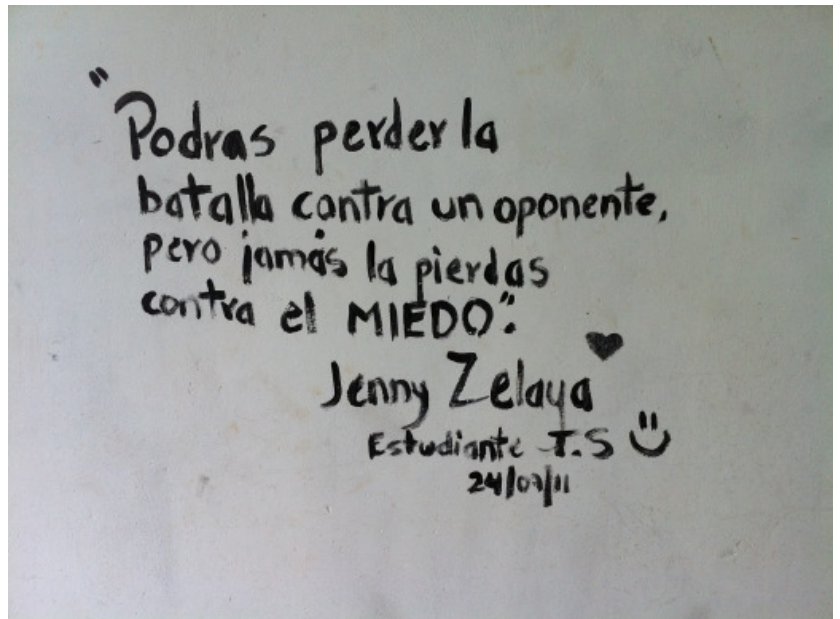 "Podras perder la
batalla contra un oponente,
pero jamás la pierdas
contra el MIEDO".
Jenny Zelaya
Estudiante T.S
24/07/11